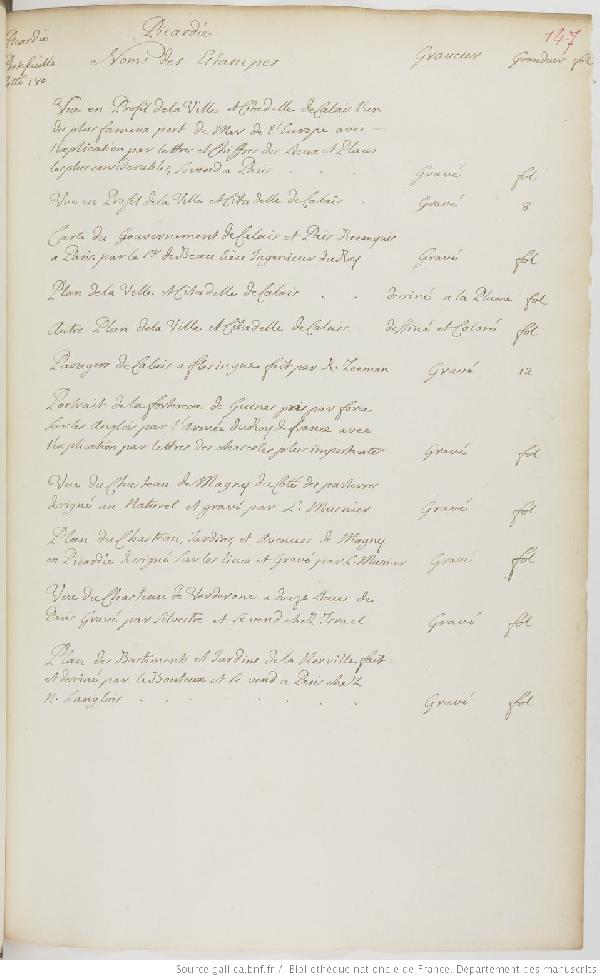 Picardie
147
Picardie
Portefeuille
Cotté 180
Noms des Estampes Graveur Grandeur fol
Vue en Profil de la Ville et Citadelle de Calais l'un
des plus fameux port de Mer de l'Europe avec
l'explication par lettres et Chiffres des Lieux et Places
les plus considerables, se vend a Paris . . . Gravé fol
Vue en Profil de la Ville et Citadelle de Calais . Gravé 8
Carte du Gouvernement de Calais et Païs Reconquis
a Paris par le Sr. de Beaulieu Ingenieur du Roy Gravé fol
Plan de la Ville et Citadelle de Calais . . dessiné a la Plume fol
Autre Plan de la Ville et Citadelle de Calais dessiné et Coloré fol
Passages de Calais a flesingue fait par R. Zeeman Gravé 12
Portrait de la forteresse de Guines pris par force
sur les Anglois par l'Armée du Roy de france avec
l'explication par lettres des choses les plus importantes Gravé fol
Vue du Chasteau de Magny du Coté des parterres
designé au Naturel et gravé par L. Meunier Gravé fol
Plan du Chasteau, Jardins, et avenues de Magny
en Picardie designé sur les lieux et Gravé par L. Meunier Gravé fol
Vue du Chasteau de Verderone a douze lieues de
Paris Gravé par Silvestre et se vend chez Israel Gravé fol
Plan des Bastiments et Jardins de la Norville fait
et dessiné par le Bouteux et se vend a Paris chez
N. Langlois . . . . . . Gravé fol
Source gallica.bnf.fr / Bibliothèque nationale de France. Département des manuscrits